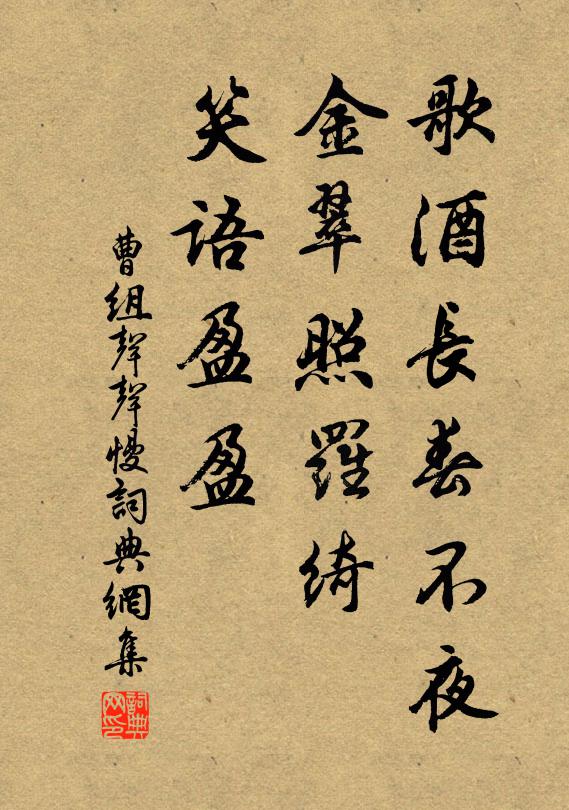 歌酒長春不夜
金翠照羅綺
笑語盈盈
曹組聲聲慢詞典網集
詞典网印